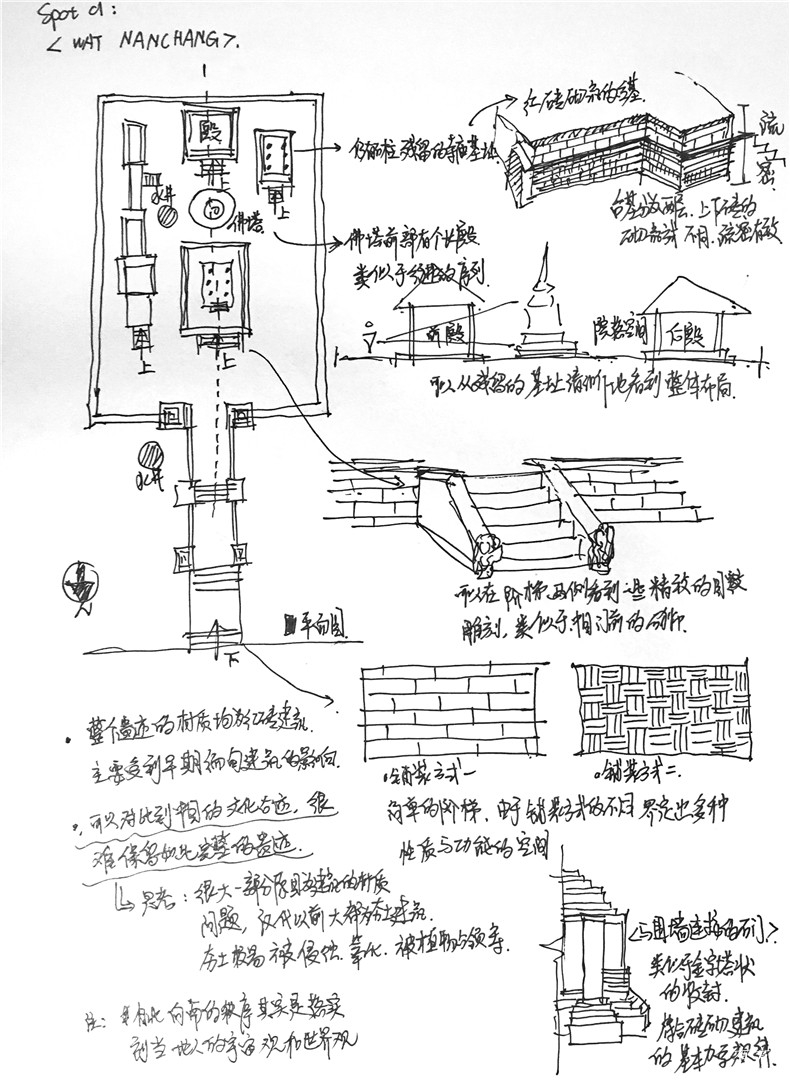 Spot d:
< WAT NANCHANG >.
殿
上
水井
佛塔
上
上
上
水井
N
平面图
下
红砖砌筑的台基.
仍留柱残留的寺庙基址
疏
密
台基分成两层. 上下砖的
砌筑方式不同. 疏密有致
佛塔前部有个前殿
类似于多进的序列
前殿
院落空间
后殿
可以从残留的基址清晰地看到整体布局.
可以在阶梯两侧看到一些精致的图案
雕刻, 类似于中国门前的石狮.
铺装方式一
铺装方式二.
简单的阶梯, 由于铺装方式的不同 界定出多种
性质与功能的空间
• 整个遗迹的材质均为红砖建筑.
主要受到早期缅甸建筑的影响.
• 可以对比到中国的文化古迹, 很
难保留如此完整的遗迹.
思考: 很大一部分原因为建筑的材质
问题, 汉代以前大都夯土建筑.
夯土极易被侵蚀. 风化. 被植物占领等.
注: 坐北向南的秩序其实是落实
到当地人的宇宙观和世界观
<与围墙连接的石门>
类似于金字塔状
的收封.
符合砖砌建筑
的基本力学规律.